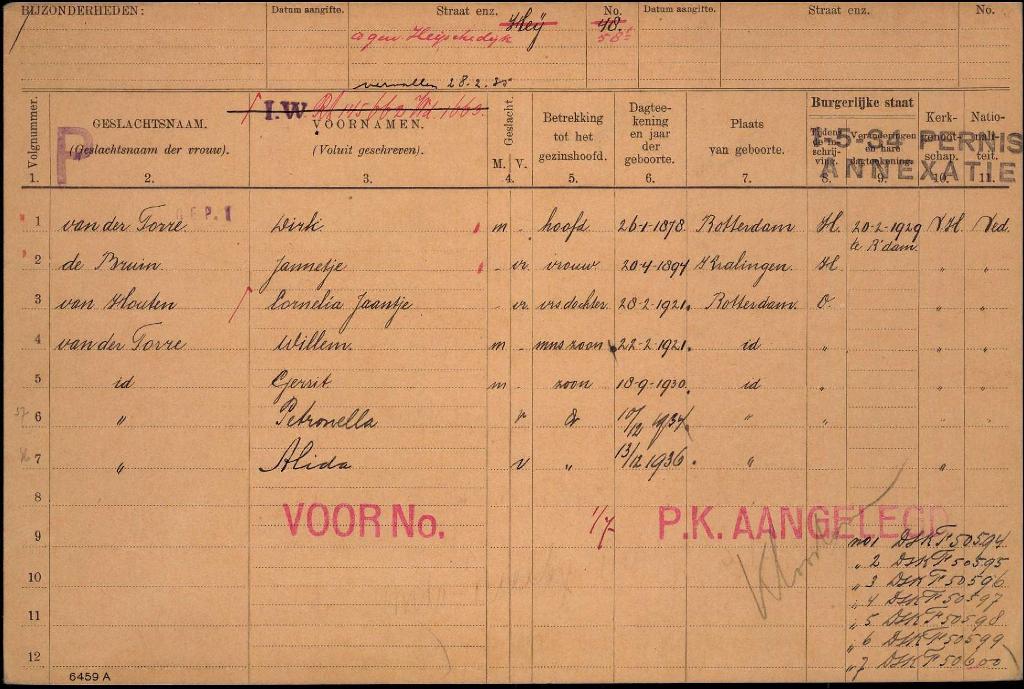 BIJZONDERHEDEN: Datum aangifte. Straat enz. No. Datum aangifte. Straat enz. No.
Heij 48.
agen. Heijschedijk 58
vervallen 28.2.35
I.W.
Volgnummer. GESLACHTSNAAM. VOORNAMEN. Geslacht. Betrekking Dagtee- Plaats Burgerlijke staat Kerk- Natio-
(Geslachtsnaam der vrouw). (Voluit geschreven). M. V. tot het kening en jaar van geboorte. Tijdens de in- schrij- ving. Veranderingen en hare dagteekening. genoot- nali-
gezinshoofd. der geboorte. schap. teit.
1. 2. 3. 4. 5. 6. 7. 8. 9. 10. 11.
P
1-5-34 PERNIS
ANNEXATIE
DEP. 1
1 van der Torre Dirk m hoofd 26-1-1878 Rotterdam H. 20-2-1929 N.H. Ned.
te R'dam.
2 de Bruin Jannetje vr. vrouw 20-4-1894 Kralingen. H. " "
3 van Houten Cornelia Jaantje vr. vrs dochter 20-2-1921. Rotterdam O. " "
4 van der Torre Willem. m mns zoon 22-2-1921. id " " "
5 id Gerrit m zoon 18-9-1930. id " " "
6 " Petronella v d 10/12 1934. " " " "
7 " Alida v " 13/12 1936. " "
8
VOOR No. 1/7 P.K. AANGELEGD
9 no 1 DSKF 50594
" 2 DSKF 50595
10 " 3 DSKF 50596
" 4 DSKF 50597
11 " 5 DSKF 50598
" 6 DSKF 50599
12 " 7 DSKF 50600
6459 A